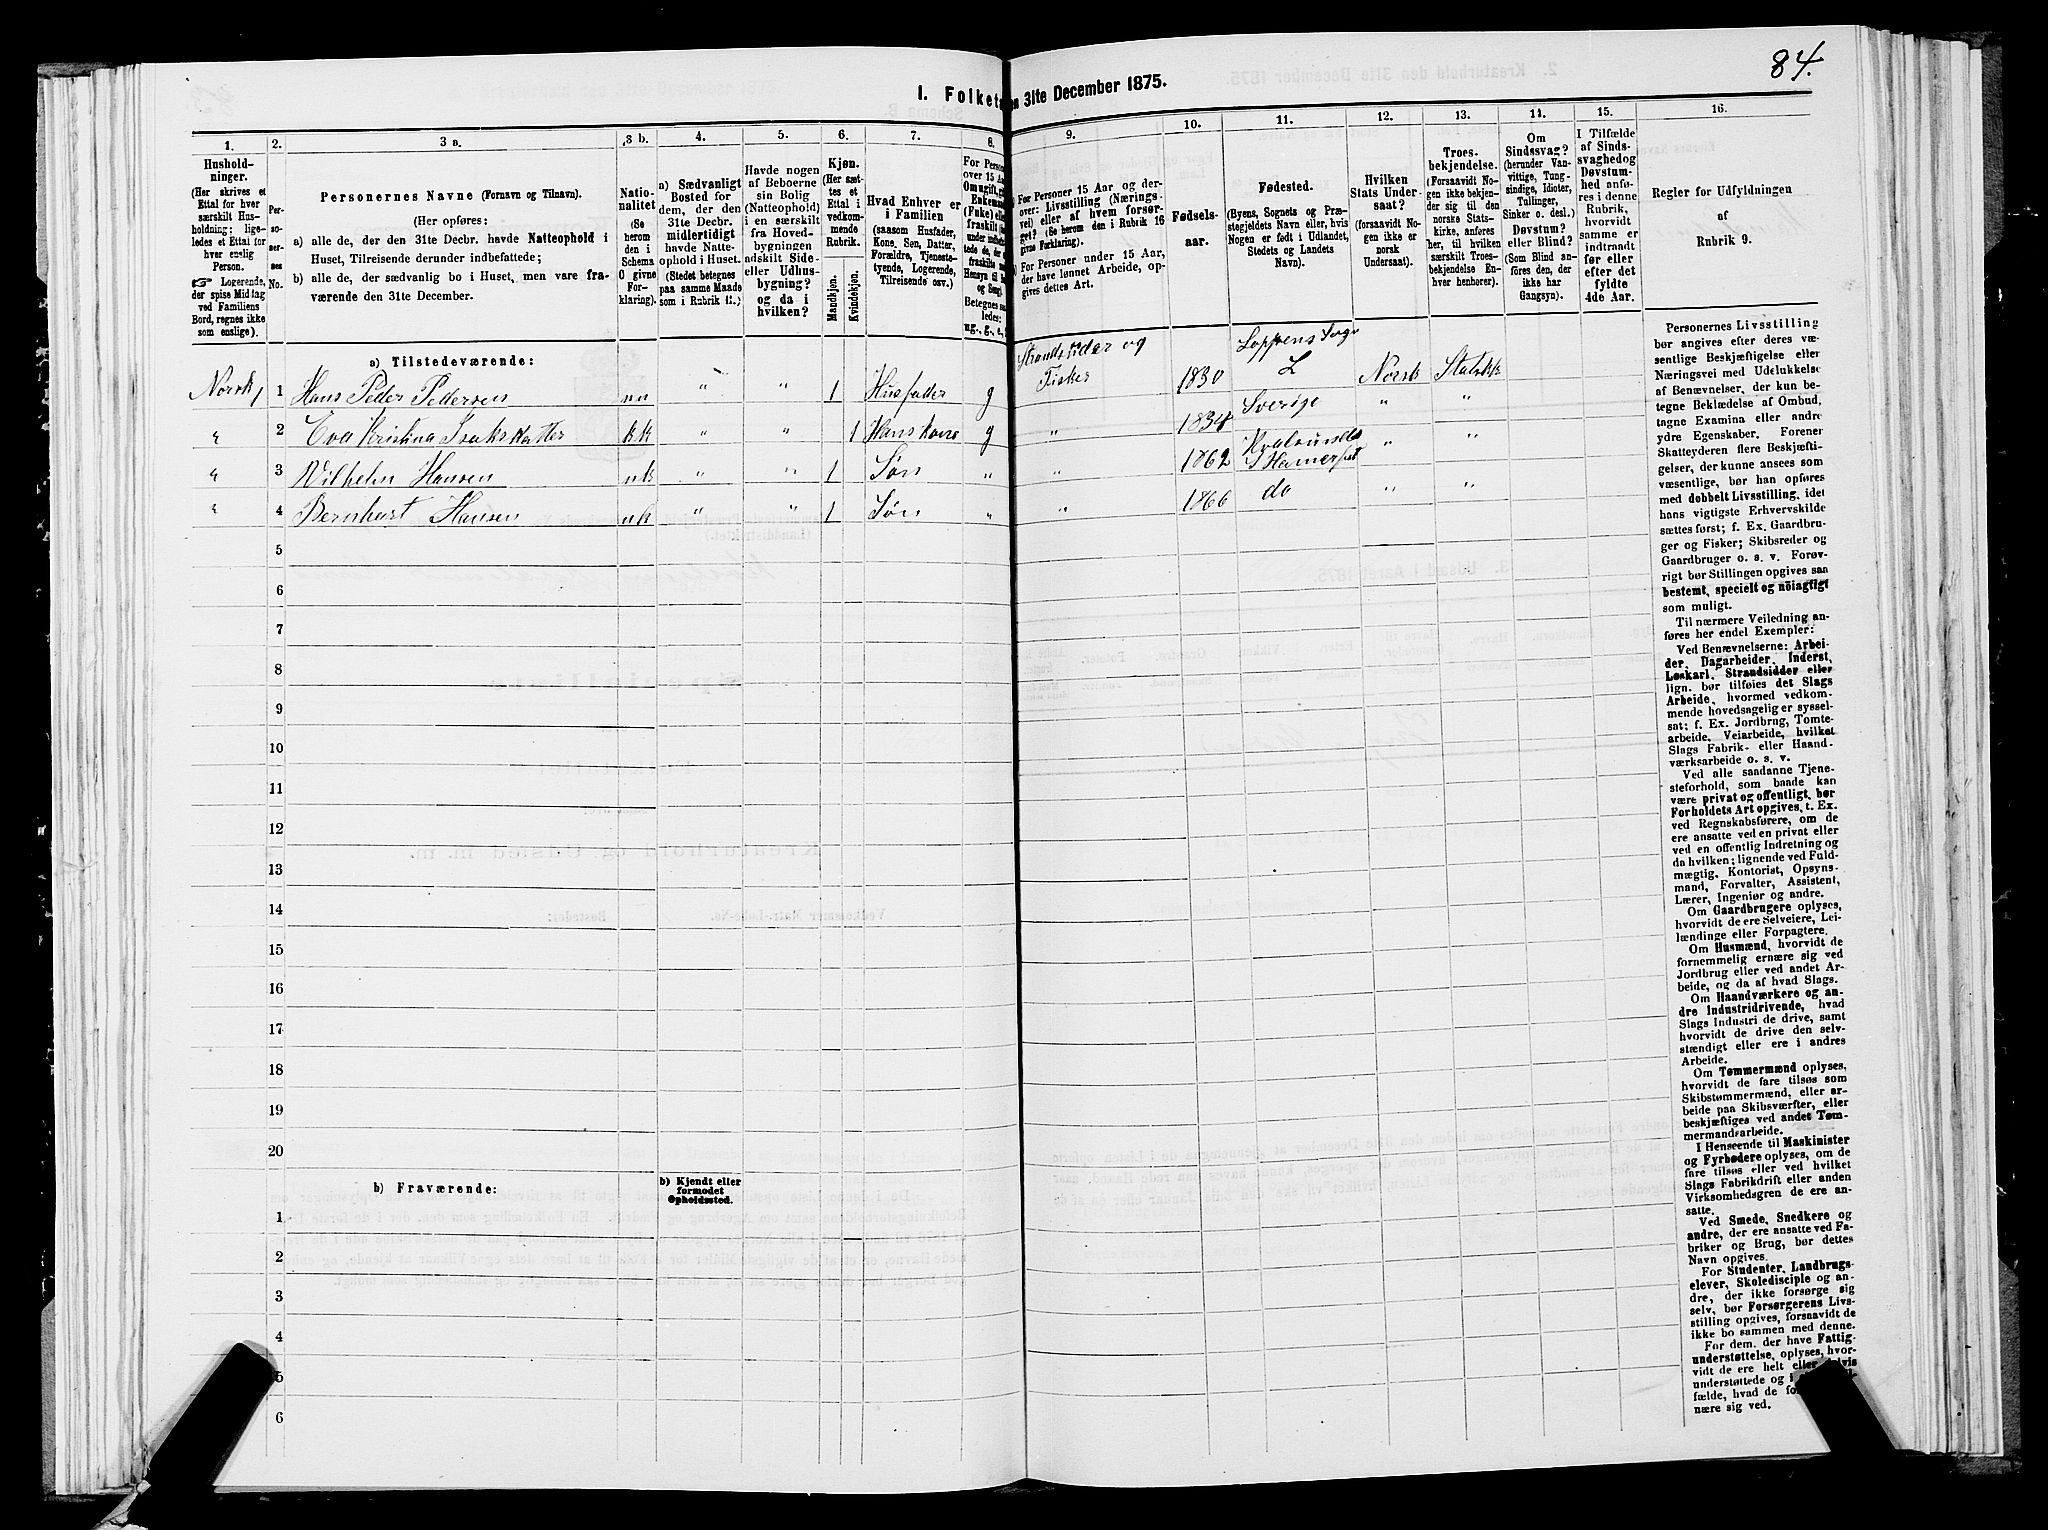 84.
I. Folket
en 31te December 1875.
1. 2. 3 a. 3 b. 4. 5. 6. 7. 8. 9. 10. 11. 12. 13. 14. 15. 16.
Hushold-
ninger.
(Her skrives et
Ettal for hver
særskilt Hus-
holdning; lige-
ledes et Ettal for
hver enslig
Person.
☞ Logerende,
der spise Middag
ved Familiens
Bord, regnes ikke
som enslige).
Per-
so-
ner-
nes
No.
Personernes Navne (Fornavn og Tilnavn).
(Her opføres:
a) alle de, der den 31te Decbr. havde Natteophold i
Huset, Tilreisende derunder indbefattede;
b) alle de, der sædvanlig bo i Huset, men vare fra-
værende den 31te December.
Natio-
nalitet
(Se
herom
den i
Schema
O givne
For-
klaring).
a) Sædvanligt
Bosted for
dem, der den
31te Decbr.
midlertidigt
havde Natte-
ophold i Huset.
(Stedet betegnes
paa samme Maade
som i Rubrik 11.)
Havde nogen
af Beboerne
sin Bolig
(Natteophold)
i en særskilt
fra Hoved-
bygningen
adskilt Side-
eller Udhus-
bygning?
og da i
hvilken?
Kjøn.
(Her sæt-
tes et
Ettal i
vedkom-
mende
Rubrik.
Mandkjøn.
Kvindekjøn.
Hvad Enhver er
i Familien
(saasom Husfader,
Kone, Søn, Datter,
Forældre, Tjeneste-
tyende, Logerende,
Tilreisende osv.)
For Personer 15 Aar og der-
over: Livsstilling (Nærings-
vei) eller af hvem forsør-
get? (Se herom den i Rubrik 16
givne Forklaring).
For Personer under 15 Aar,
der have lønnet Arbeide, op-
gives dettes Art.
Fødsels-
aar.
Fødested.
(Byens, Sognets og Præ-
stegjeldets Navn eller, hvis
Nogen er født i Udlandet,
Stedets og Landets
Navn).
Hvilken
Stats Under-
saat?
(forsaavidt No-
gen ikke er
norsk
Undersaat).
Troes-
bekjendelse.
(Forsaavidt No-
gen ikke bekjen-
der sig til den
norske Stats-
kirke, anføres
her, til hvilken
særskilt Troes-
bekjendelse En-
hver henhører).
Om
Sindssvag?
(herunder Van-
vittige, Tung-
sindige, Idioter,
Tullinger,
Sinker o. desl.)
Døvstum?
eller Blind?
(Som Blind an-
føres den, der
ikke har
Gangsyn).
I Tilfælde
af Sinds-
svaghed og
Døvstum-
hed anfø-
res i denne
Rubrik,
hvorvidt
samme er
indtraadt
før eller
efter det
fyldte
4de Aar.
Regler for Udfyldningen
af
Rubrik 9.
a) Tilstedeværende:
Norsk 1 1 Hans Peder Pedersen nn " " 1 Husfader g Strandsidder og Fisker 1830 Loppens Sogn L Norsk Statskk
" 2 Eva Kristina Isaksdatter kk " " 1 Hans kone g " 1834 Sverige " "
" 3 Vilhelm Hansen nk " " 1 Søn " " 1862 Kvalsunds S Hamerfst " "
" 4 Bernhart Hansen nk " " 1 Søn " " 1866 do " "
5
6
7
8
9
10
11
12
13
14
15
16
17
18
19
20
b) Fraværende:
b) Kjendt eller
formodet
Opholdssted.
1
2
3
4
5
6
Personernes Livsstilling
bør angives efter deres væ-
sentlige Beskjæftigelse eller
Næringsvei med Udelukkelse
af Benævnelser, der kun be-
tegne Beklædelse af Ombud,
tagne Examina eller andre
ydre Egenskaber. Forener
Skatteyderen flere Beskjæfti-
gelser, der kunne ansees som
væsentlige, bør han opføres
med dobbelt Livsstilling, idet
hans vigtigste Erhvervskilde
sættes først; f. Ex. Gaardbru-
ger og Fisker; Skibsreder og
Gaardbruger o. s. v. Forøv-
rigt bør Stillingen opgives saa
bestemt, specielt og nöiagtigt
som muligt.
Til nærmere Veiledning an-
føres her endel Exempler:
Ved Benævnelserne: Arbei-
der, Dagarbeider, Inderst,
Løskarl, Strandsidder eller
lign. bør tilføies det Slags
Arbeide, hvormed vedkom-
mende hovedsagelig er syssel-
sat; f. Ex. Jordbrug, Tomte-
arbeide, Veiarbeide, hvilket
Slags Fabrik- eller Haand-
værksarbeide o. s. v.
Ved alle saadanne Tjene-
steforhold, som baade kan
være privat og offentligt, bør
Forholdets Art opgives, t. Ex.
ved Regnskabsførere, om de
ere ansatte ved en privat eller
ved en offentlig Indretning og
da hvilken; lignende ved Fuld-
mægtig, Kontorist, Opsyns-
mand, Forvalter, Assistent,
Lærer, Ingeniør og andre.
Om Gaardbrugere oplyses,
hvorvidt de ere Selveiere, Lei-
lændinge eller Forpagtere.
Om Husmænd, hvorvidt de
fornemmelig ernære sig ved
Jordbrug eller ved andet Ar-
beide, og da af hvad Slags.
Om Haandværkere og an-
dre Industridrivende, hvad
Slags Industri de drive, samt
hvorvidt de drive den selv-
stændigt eller ere i andres
Arbeide.
Om Tømmermænd oplyses,
hvorvidt de fare tilsøs som
Skibstømmermænd, eller ar-
beide paa Skibsværfter, eller
beskjæftiges ved andet Tøm-
mermandsarbeide.
I Henseende til Maskinister
og Fyrbødere oplyses, om de
fare tilsøs eller ved hvilket
Slags Fabrikdrift eller anden
Virksomhedsgren de ere an-
satte.
Ved Smede, Snedkere og
andre, der ere ansatte ved Fa-
briker og Brug, bør dettes
Navn opgives.
For Studenter, Landbrugs-
elever, Skoledisciple og an-
dre, der ikke forsørge sig
selv, bør Forsørgerens Livs-
stilling opgives, forsaavidt de
ikke bo sammen med denne.
For dem, der have Fattig-
understøttelse, oplyses, hvor-
vidt de ere helt eller delvis
understøttede og i
fælde, hvad de
nære sig ved.